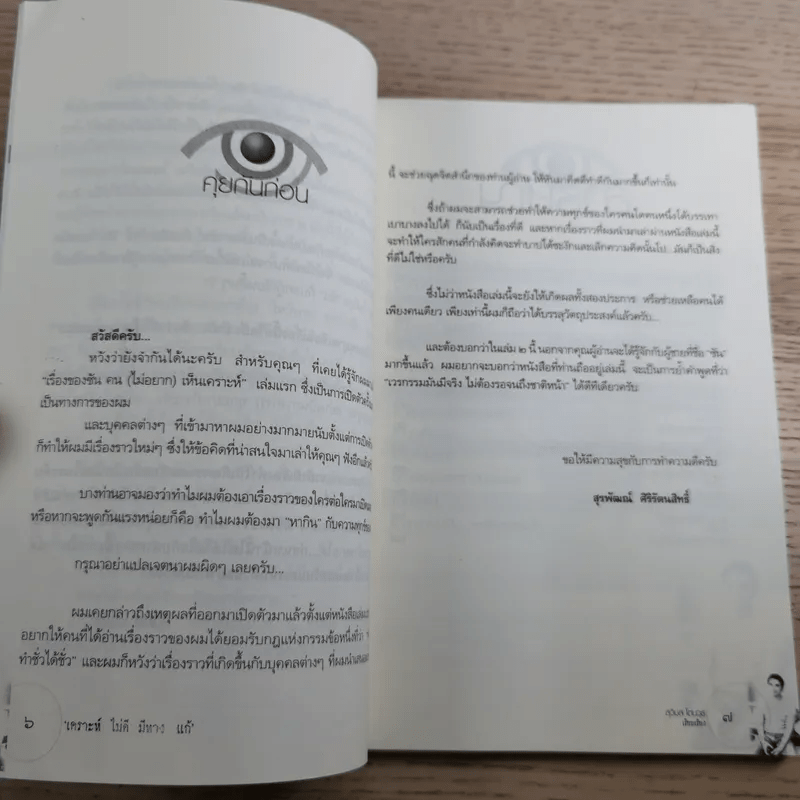 คุยกันก่อน
สวัสดีครับ...
หวังว่ายังจำกันได้นะครับ สำหรับคุณๆ ที่เคยได้รู้จักผม
"เรื่องของซัน คน (ไม่อยาก) เห็นเคราะห์" เล่มแรก ซึ่งเป็นการเปิดตัว
เป็นทางการของผม
และบุคคลต่างๆ ที่เข้ามาหาผมอย่างมากมายนับตั้งแต่การเปิด
ก็ทำให้ผมมีเรื่องราวใหม่ๆ ซึ่งให้ข้อคิดที่น่าสนใจมาเล่าให้คุณๆ ฟังอีกแล้ว
บางท่านอาจมองว่าทำไมผมต้องเอาเรื่องราวของใครต่อใครมา
หรือหากจะพูดกันแรงหน่อยก็คือ ทำไมผมต้องมา "หากิน" กับความทุกข์
กรุณาอย่าแปลเจตนาผมผิดๆ เลยครับ...
ผมเคยกล่าวถึงเหตุผลที่ออกมาเปิดตัวมาแล้วตั้งแต่หนังสือเล่ม
อยากให้คนที่ได้อ่านเรื่องราวของผมได้ยอมรับกฎแห่งกรรมข้อหนึ่งที่ว่า
ทำชั่วได้ชั่ว" และผมก็หวังว่าเรื่องราวที่เกิดขึ้นกับบุคคลต่างๆ ที่ผม
๖ "เคราะห์ ไม่ดี มีทาง แก้"
นี้ จะช่วยฉุดจิตสำนึกของท่านผู้อ่าน ให้หันมาคิดดีทำดีกันมากขึ้นก็เท่านั้น
ซึ่งถ้าผมจะสามารถช่วยทำให้ความทุกข์ของใครคนใดคนหนึ่งได้บรรเทา
เบาบางลงไปได้ ก็นับเป็นเรื่องที่ดี และหากเรื่องราวที่ผมนำมาเล่าผ่านหนังสือเล่มนี้
จะทำให้ใครสักคนที่กำลังคิดจะทำบาปได้ชะงักและเลิกความคิดนั้นไป มันก็เป็นสิ่ง
ที่ดีไม่ใช่หรือครับ
ซึ่งไม่ว่าหนังสือเล่มนี้จะยังให้เกิดผลทั้งสองประการ หรือช่วยเหลือคนได้
เพียงคนเดียว เพียงเท่านี้ผมก็ถือว่าได้บรรลุวัตถุประสงค์แล้วครับ...
และต้องบอกว่าในเล่ม ๒ นี้ นอกจากคุณผู้อ่านจะได้รู้จักกับผู้ชายที่ชื่อ "ซัน"
มากขึ้นแล้ว ผมอยากจะบอกว่าหนังสือที่ท่านถืออยู่เล่มนี้ จะเป็นการย้ำคำพูดที่ว่า
"เวรกรรมมันมีจริง ไม่ต้องรอจนถึงชาติหน้า" ได้ดีทีเดียวครับ
ขอให้มีความสุขกับการทำความดีครับ
สุรพัฒณ์ ศิริรัตนสิทธิ์
๗